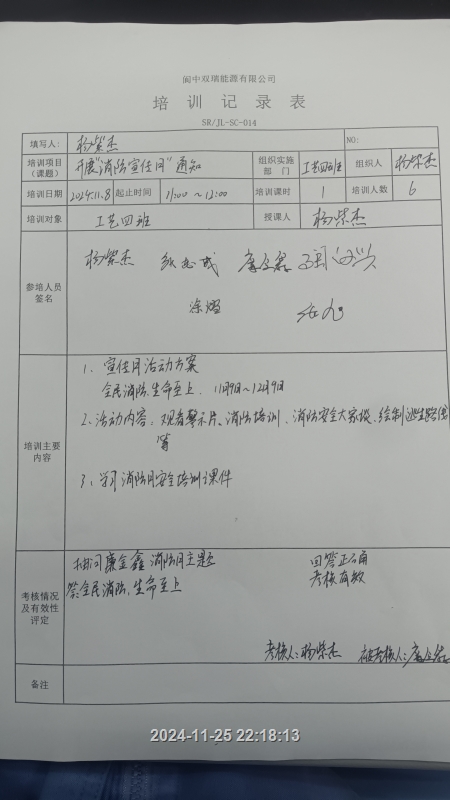 阆中双瑞能源有限公司
培训记录表
SR/JL-SC-014
填写人: 杨紫杰 NO:
培训项目（课题） 开展"消防宣传月"通知 组织实施部门 工艺四班 组织人 杨紫杰
培训日期 2024.11.8 起止时间 11:00 ~ 12:00 培训课时 1 培训人数 6
培训对象 工艺四班 授课人 杨紫杰
参培人员签名 杨紫杰
涂熠
培训主要内容
1、宣传月活动方案
全民消防、生命至上 11月9日~12月9日
2、活动内容：观看警示片、消防培训、消防安全大家谈、绘制逃生路线
等
3、学习消防月安全培训课件
考核情况及有效性评定
抽问廉金鑫消防月主题 回答正确
答全民消防、生命至上 考核有效
考核人：杨紫杰 被考核人：
备注
2024-11-25 22:18:13